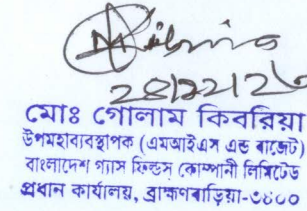 ২৪/১২/২৩
মোঃ গোলাম কিবরিয়া
উপমহাব্যবস্থাপক (এমআইএস এন্ড বাজেট)
বাংলাদেশ গ্যাস ফিল্ডস্ কোম্পানী লিমিটেড
প্রধান কার্যালয়, ব্রাহ্মণবাড়িয়া-৩৪০০